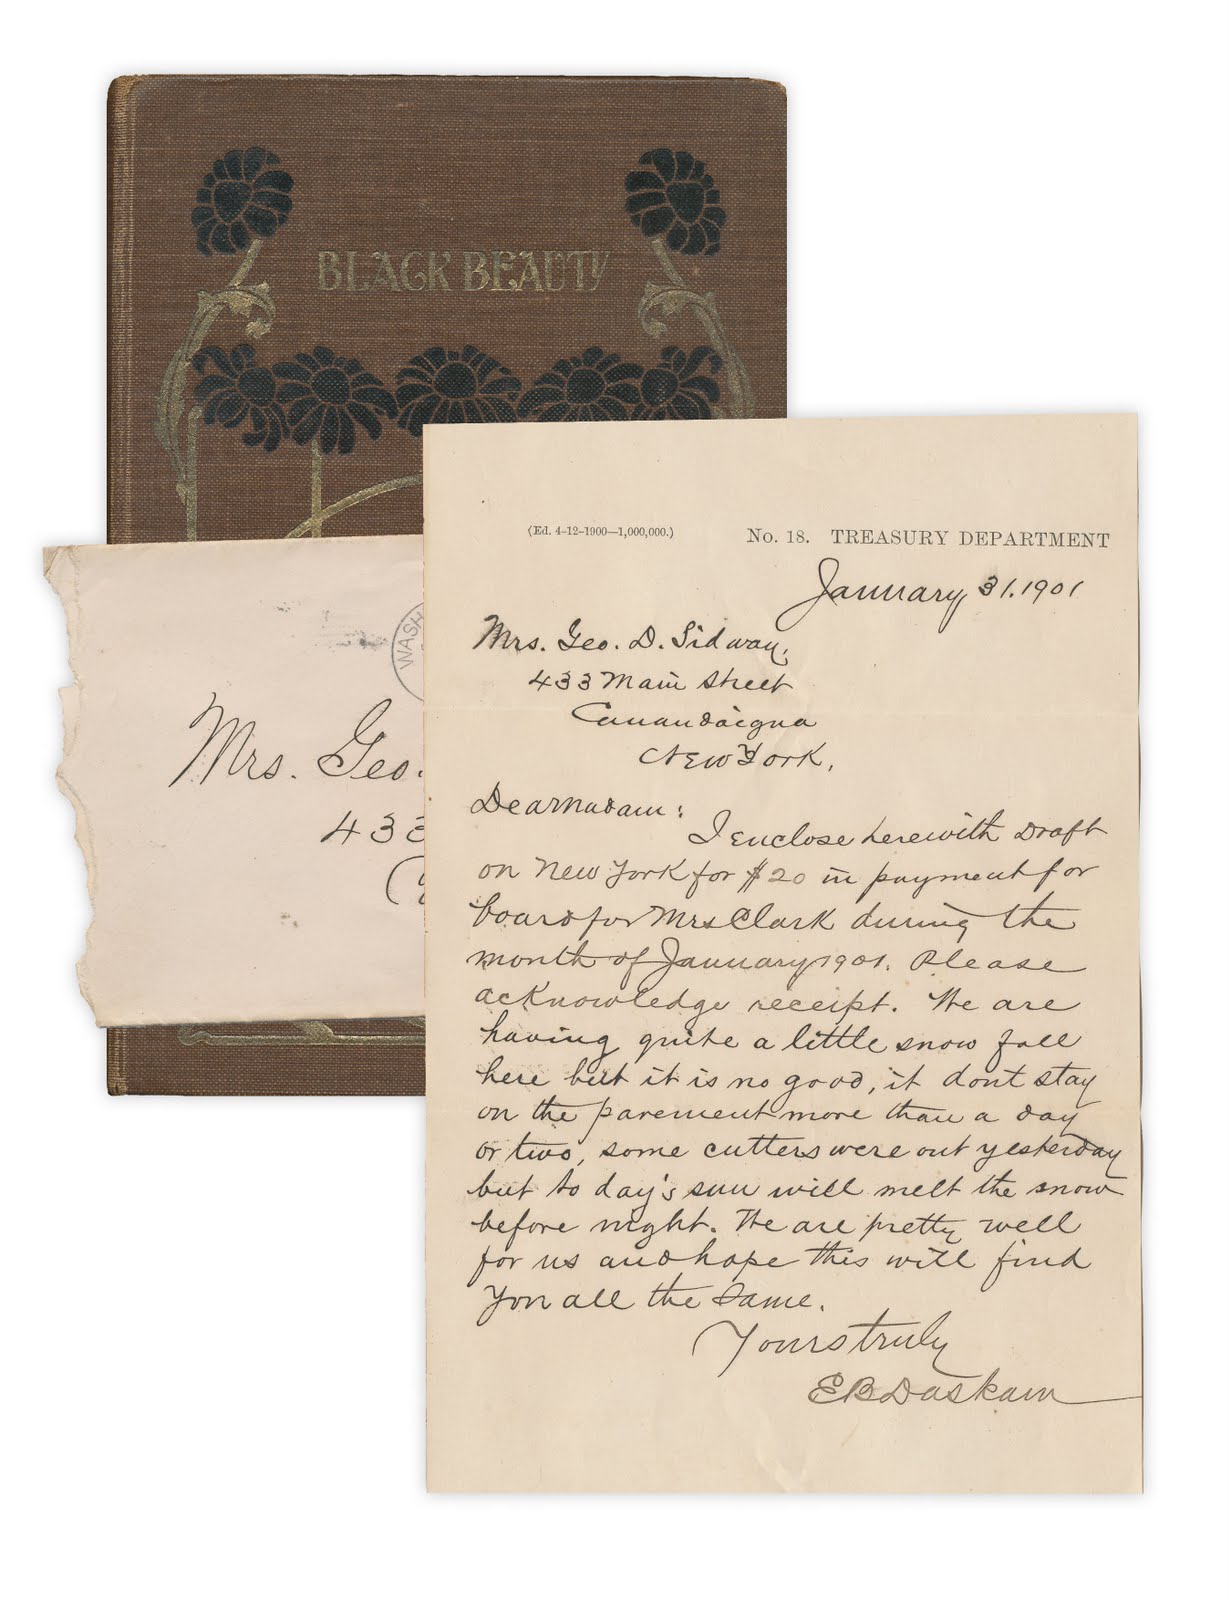 BLACK BEAUTY
WASH
Mrs. Geo.
433
(Ed. 4-12-1900—1,000,000.) No. 18. TREASURY DEPARTMENT
January 31. 1901
Mrs. Geo. D. Sidway,
433 Main Street
Canandaigua
New York,
Dear Madam:
I enclose herewith Draft
on New York for $20 in payment for
board for Mrs Clark during the
month of January 1901. Please
acknowledge receipt. We are
having quite a little snow fall
here but it is no good, it dont stay
on the pavement more than a day
or two, some cutters were out yesterday
but to day's sun will melt the snow
before night. We are pretty well
for us and hope this will find
you all the same.
Yours truly
E B Daskam